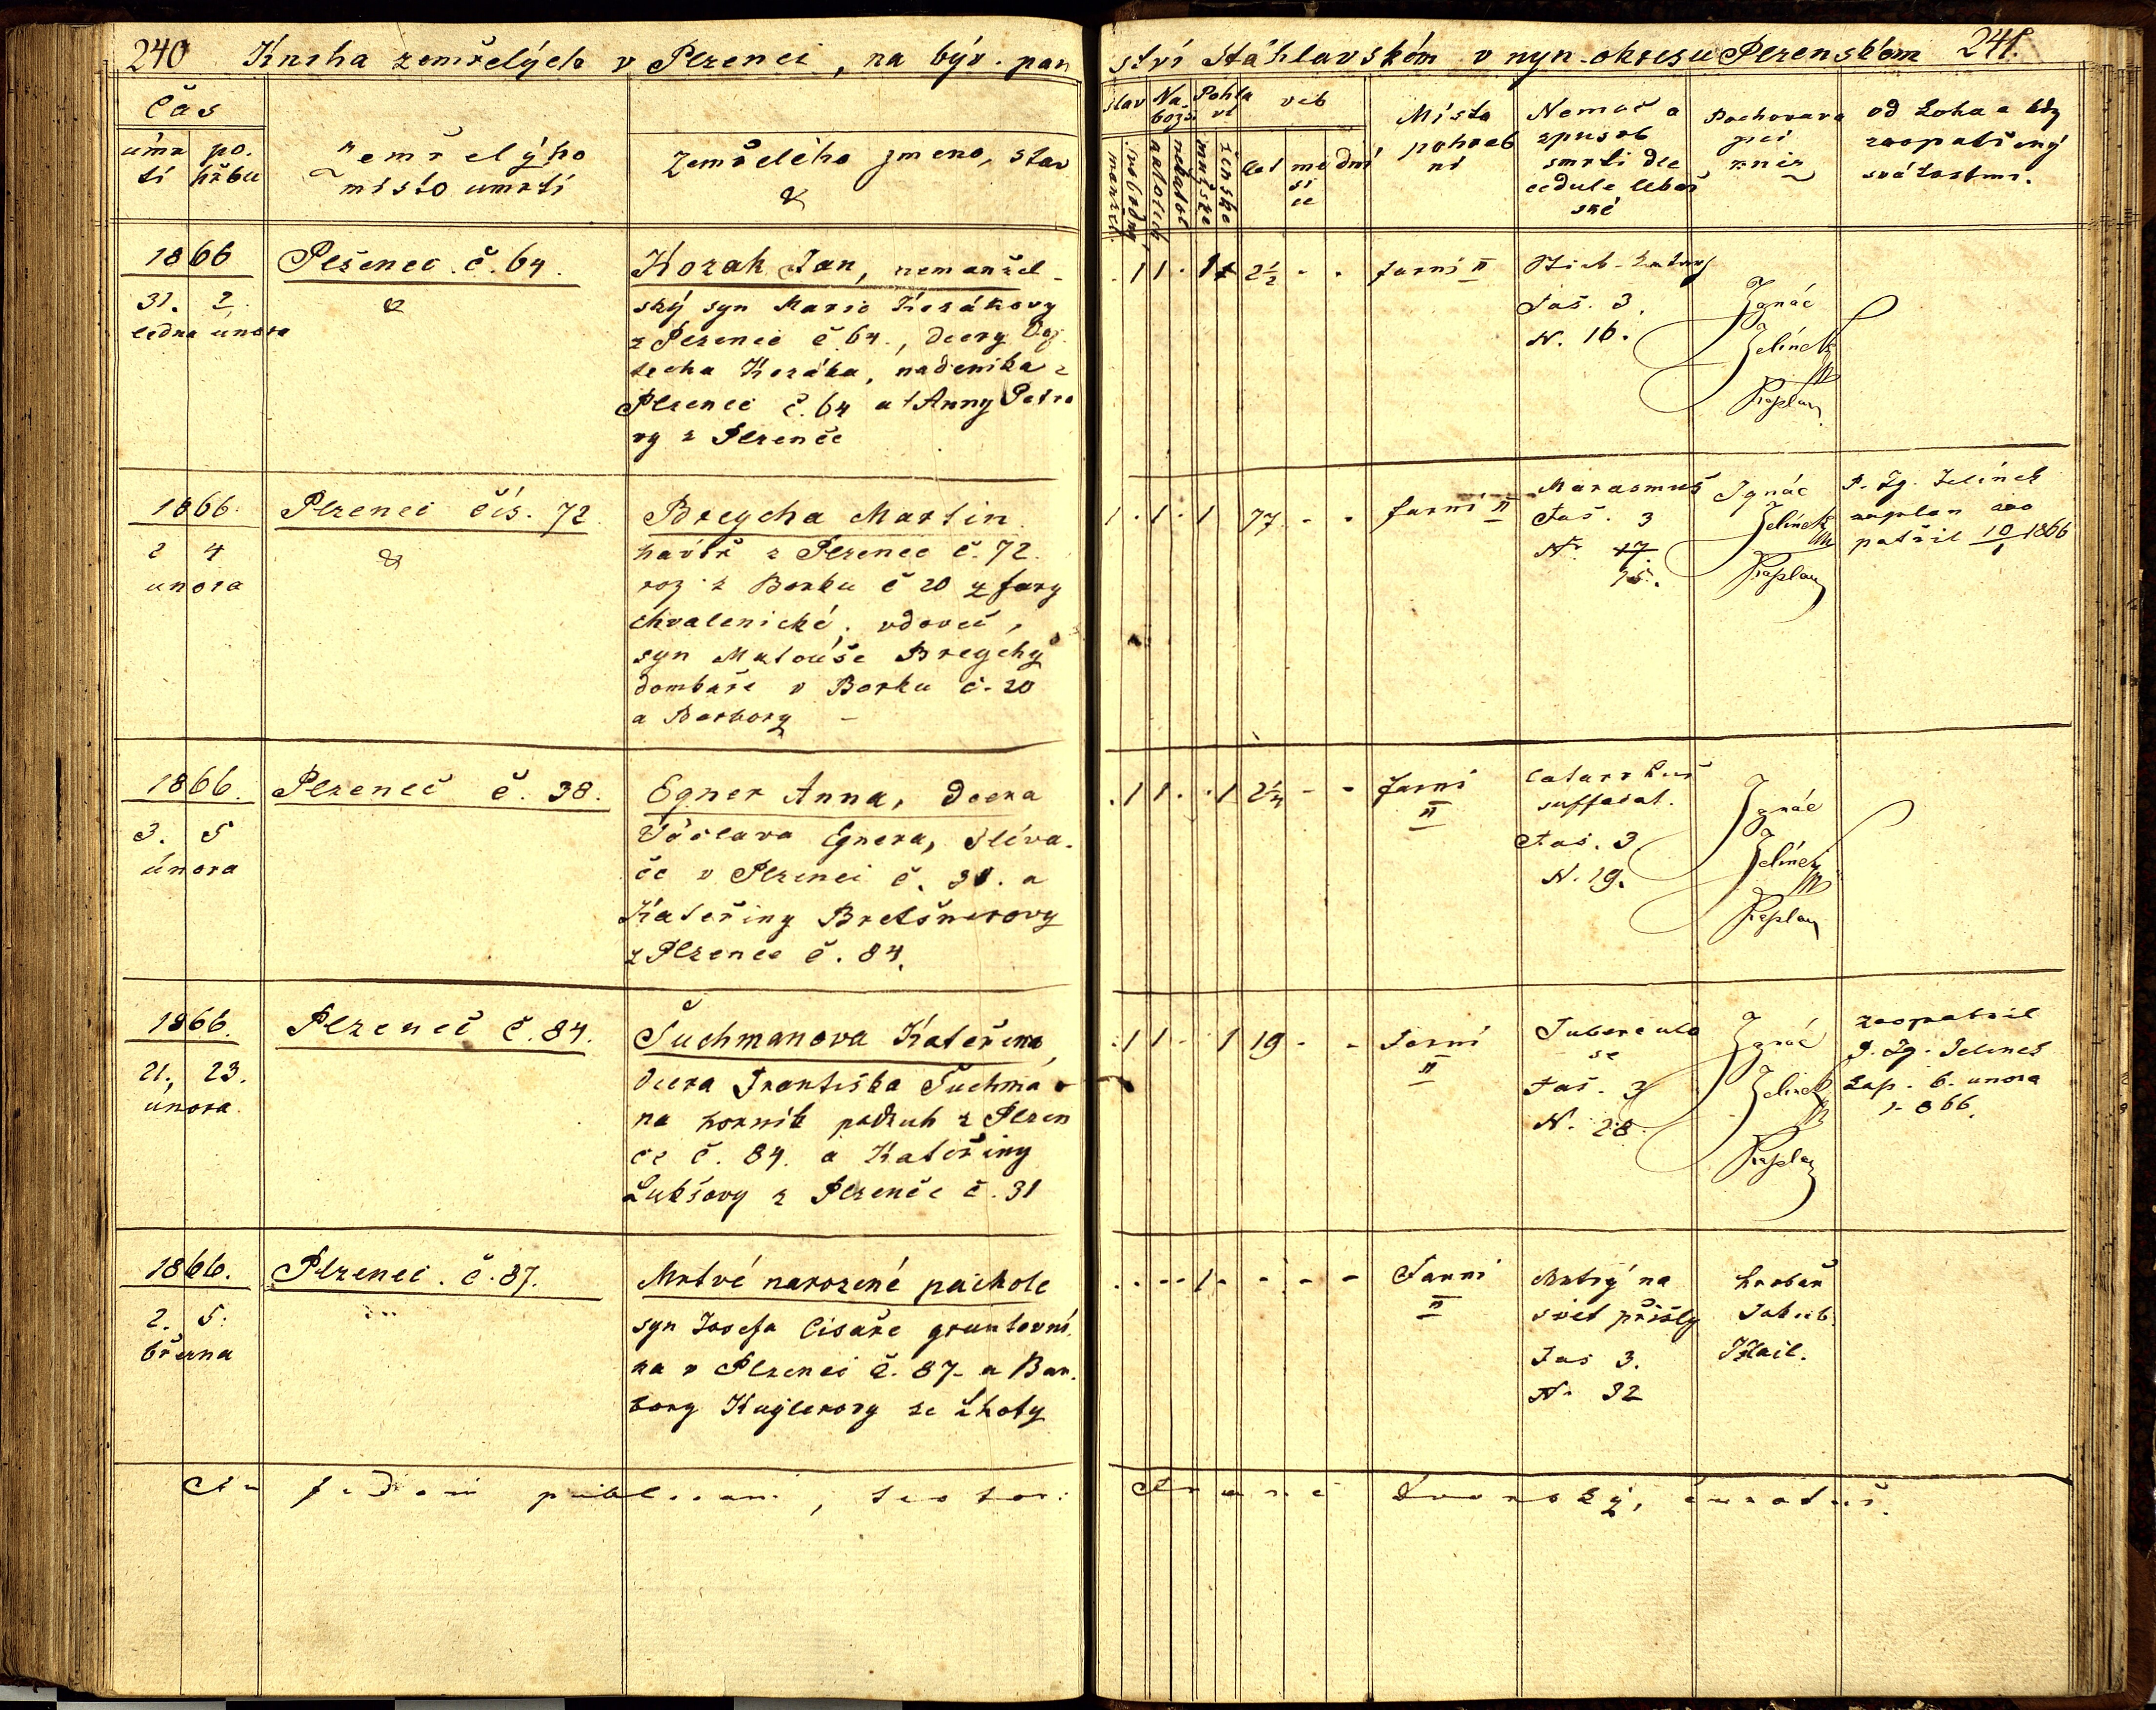 240 Kniha zemřelých v Plzenci, na býv. pan
ství Stáhlavském v nyn. okresu Plzenském 241.
Čas
úmr po.
tí hřbu
Zemřelýho
místo umrtí
Zemřelého jmeno, stav
&
stav
Na-
bozs
Pohla
ví
věk
manžel.
svobodný
katolick
nekatol
mužské
ženské
let
mě
sí
ce
dní
Místo
pohreb
ní
Nemoc a
zpusob
smrti dle
cedule lekař
ské
Pochovava
jící
kněz
od koho a kdy
zaopatřený
svátostmi.
1866
31. 2.
ledna února
Plzenec č. 64.
&
Kozak Jan, nemanžel-
ský syn Marie Kozákovy
z Plzence č. 64., dcery Voj
techa Kozáka, nadeníka z
Plzence č. 64 a Anny Petro
vy z Plzence
1 1 1 2½ - -
farní II
Faš. 3.
N. 16.
Ignác
Jelínek
Kaplan
1866.
2 4
unora
Plzenec čís. 72
&
Breycha Martin
havíř z Plzence č. 72.
roz. z Borku č 20 z fary
chvalenické, vdovec,
syn Matouše Breychy
domkáře v Borku č. 20
a Barbory -
1 . 1 . 1 77 - -
farní II
Marasmus
Faš. 3
N. 17
15.
Ignác
Jelínek
Kaplan
P. Ig. Jelínek
kaplan zao
patřil 10/1 1866
1866.
3. 5
února
Plzenec č. 38.
Egner Anna, dcera
Václava Egnera, sléva-
če v Plzenci č. 38. a
Kateřiny Bretšnerovy
z Plzence č. 84.
. 1 1 . . 1 2¼ - -
farní
II
Catarrhus
suffocat.
Faš. 3
N. 19.
Ignác
Jelínek
Kaplan
1866.
21., 23.
února
Plzenec č. 84.
Šuchmanova Kateřina,
dcera Františka Šuchma-
na horník podruh z Plzen
ce č. 84. a Kateřiny
Lukšovy z Plzence č. 31
. 1 1 - 1 19 - -
Farní
II
Tuberculo
se
Faš. 3
N. 28
Ignác
Jelínek
Kaplan
zaopatřil
P. Ig. Jelinek
kap. 6. unora
1866.
1866.
2. 5.
března
Plzenec. č. 87.
Mrtvé narozené pachole
syn Josefa Cisaře gruntovní
ka v Plzenci č. 87. a Bar-
bory Kuglerovy ze Lhoty
. . - - 1 - - - -
Farní
II
Mrtvý na
svět přišlý
Faš 3.
N. 32
hrobař
Jakub
In fidem publicam, testor: